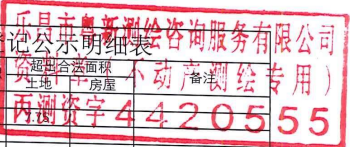 乐昌市粤新测绘咨询服务有限公司
登记公示明细表
资料章(不动产测绘专用)
超出合法面积
备注
土地
房屋
丙测资字4420555